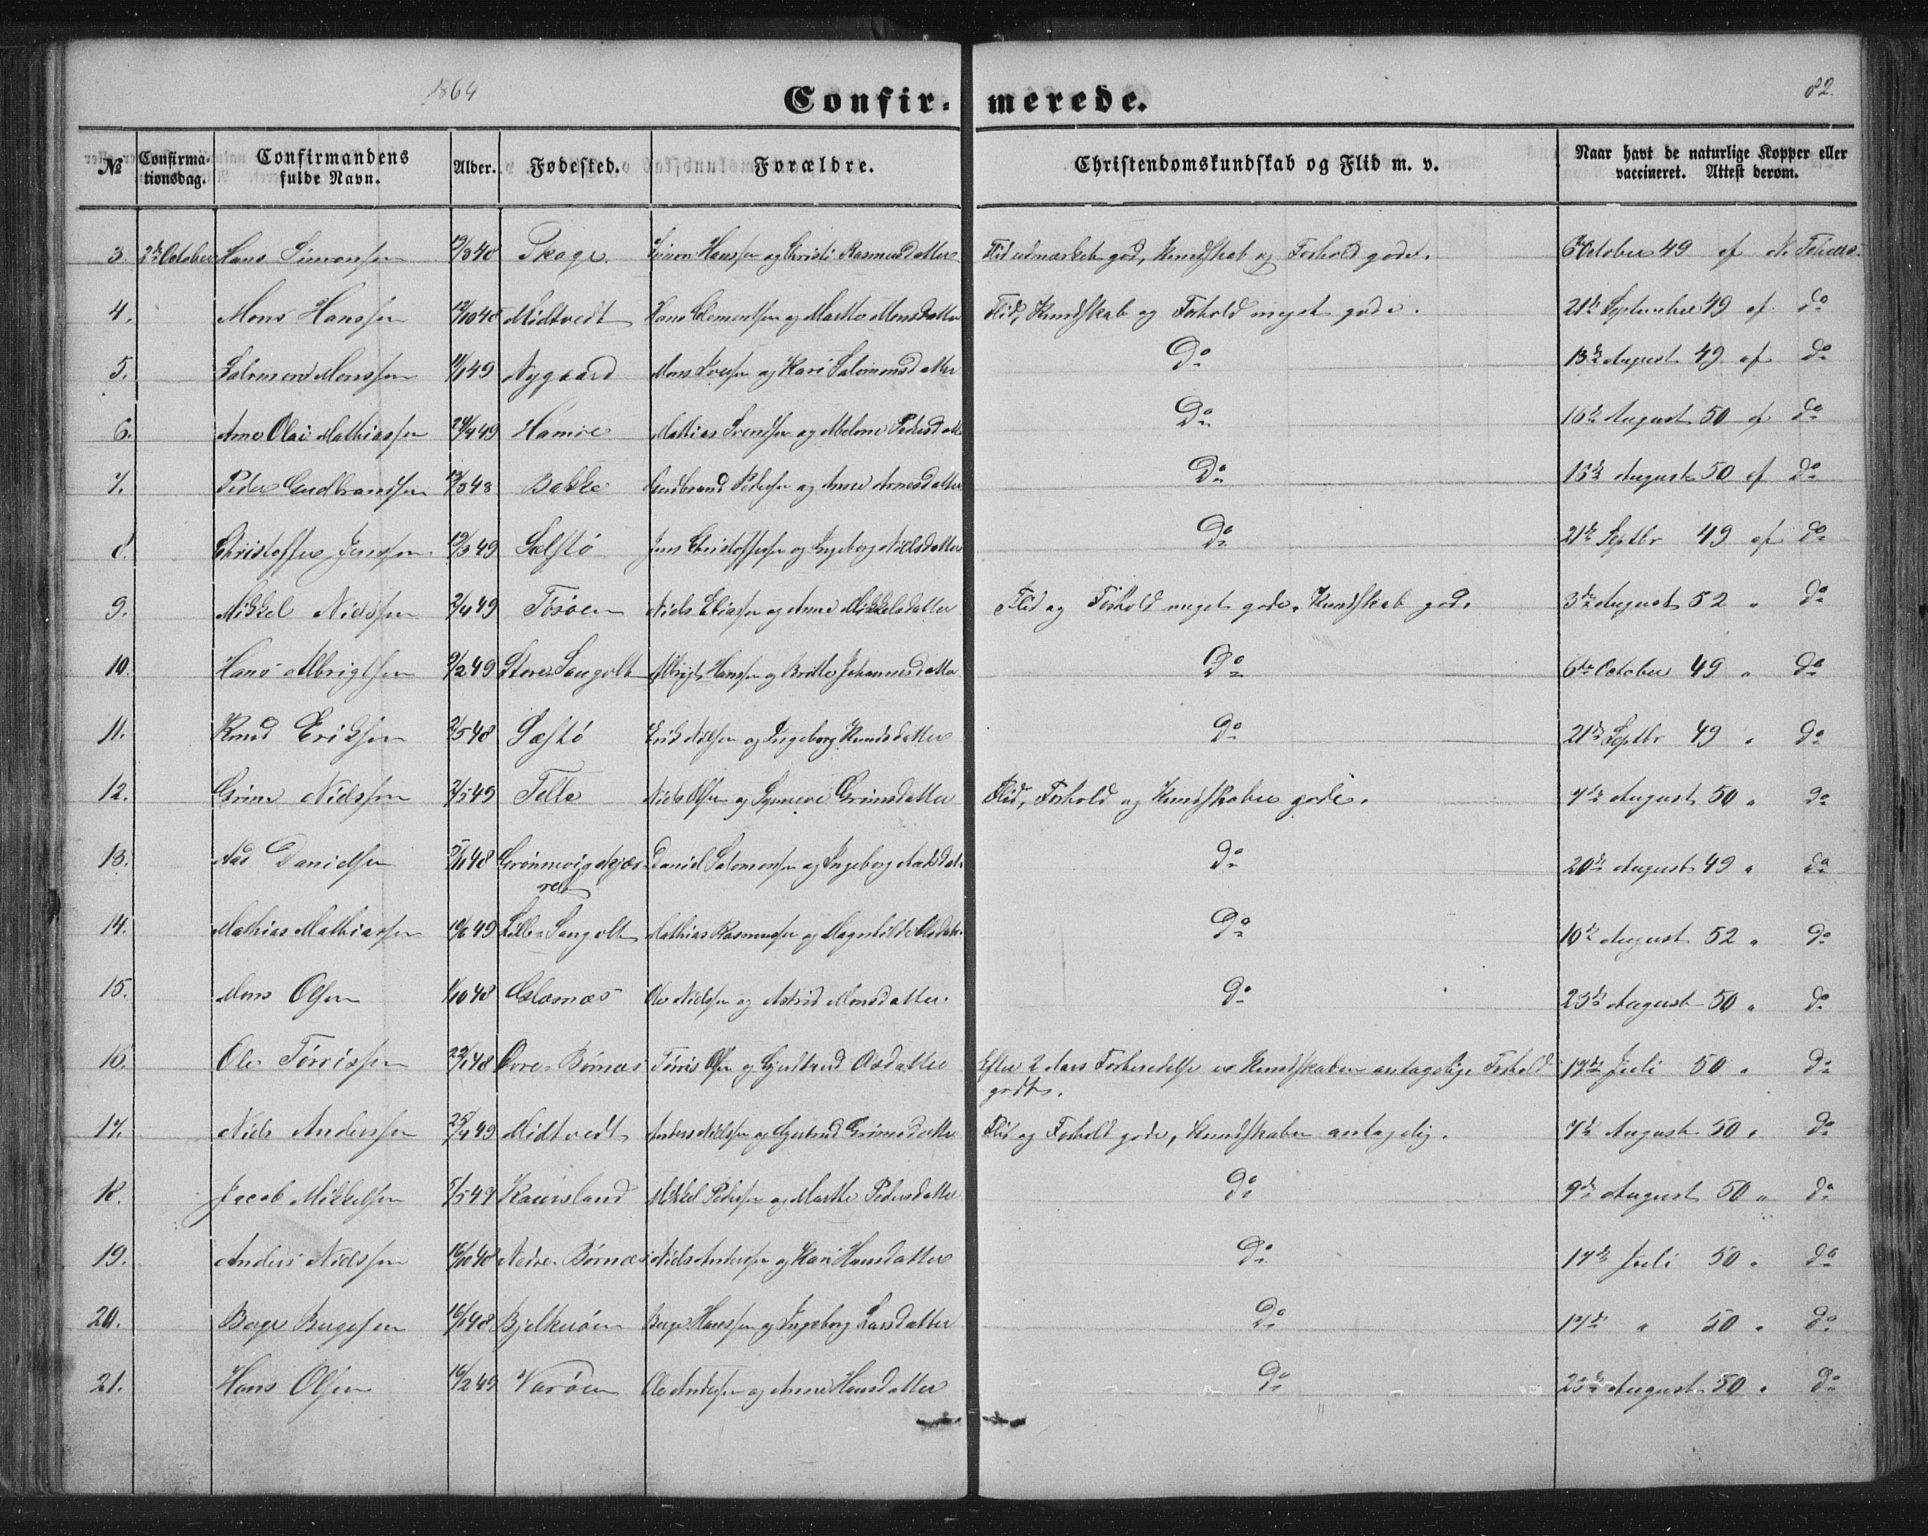 1864
Confir- merede.
82.
№ Confirmationsdag. Confirmandens fulde Navn. Alder. Fødested. Forældre. Christendomskundskab og Flid m. v. Naar havt de naturlige Kopper eller vaccineret. Attest derom.
3. 2de October Hans Simonsen Skage. Simon Hanssen og Christi Rasmusdatter Flid udmærket god, Kundskab og Forhold gode. 6 October 49 af N.
4. Mons Hanssen Midtvedt Hans Clementsen og Marthe Monsdatter Flid, Kundskab og Forhold meget gode. 21de September 49 af do
5. Salomon Monssen 49 Nygaard Mons og Kari Salomonsdatter Do 13de August 49 af do
6. Arne Olai Mathiassen 49 Mathias Svendsen og Pedersdatter Do 16de August 50 af do
7. Peder Gudbrandsen 48 Bakke Gudbrand Pedersen og Anne Arnesdatter Do 16de August 50 af do
8. Christoffer Jenssen 49 Jens Christoffersen og Ingeborg Nilsdatter Do 21de Septbr 49 af do
9. Mikkel Nielssen 2/4 49 Niels Eliassen og Anne Mikkelsdatter Flid og Forhold meget gode. Kundskab god. 3de August 52 " do
10. Hans Albrigtsen 49 Store Sangolt Albrigt Hanssen og Britte Johannesdatter Do 6de October 49 " do
11. Knud Eriksen 2/5 48 Erik Nilsen og Ingeborg Knudsdatter do 21de Septbr 49 " do
12. Grim Nielssen 49 Telle Niels Olsen og Synneve Grimsdatter Flid, Forhold og Kundskaber gode. 7de August 50 " do
13. Aad Danielsen 48 Grønnevigskjærret Daniel Salomonsen og Ingeborg do 20de August 49 " do
14. Mathias Mathiassen 49 Lille Sangolt Mathias Rasmussen og Magnhilde do 10de August 52 " do
15. Mons Olsen Glesnæs Ole Nielssen og Astrid Monsdatter. do 23de August 50 " do
16. Ole Tørrissen 48 Øvre Børnæs Tørris Olsen og Gjertrud Olsdatter Efter 2 Aars Forberedelse er Kundskaben antagelige Forhold godt. 17de Juli 50 " do
17. Niels Anderssen 49 Midtvedt Anders Nilssen og Gjertrud Grimsdatter Flid og Forhold gode, Kundskaben antagelig. 7de August 50 " do
18. Jacob Mikkelsen Kausland Mikkel Pedersen og Marthe Pedersdatter do 9de August 50 " do
19. Anders Nielssen Nedre Børnæs Niels Anderssen og Kari Hansdatter do 17de Juli 50 " do
20. Berge Bergesen 48 Bjelkerøen Berge Hanssen og Ingeborg Larsdatter do 17de " 50 " do
21. Hans Olsen 16/2 49 Varøen Ole Andersen og Anne Hansdatter do 23de August 50 " do